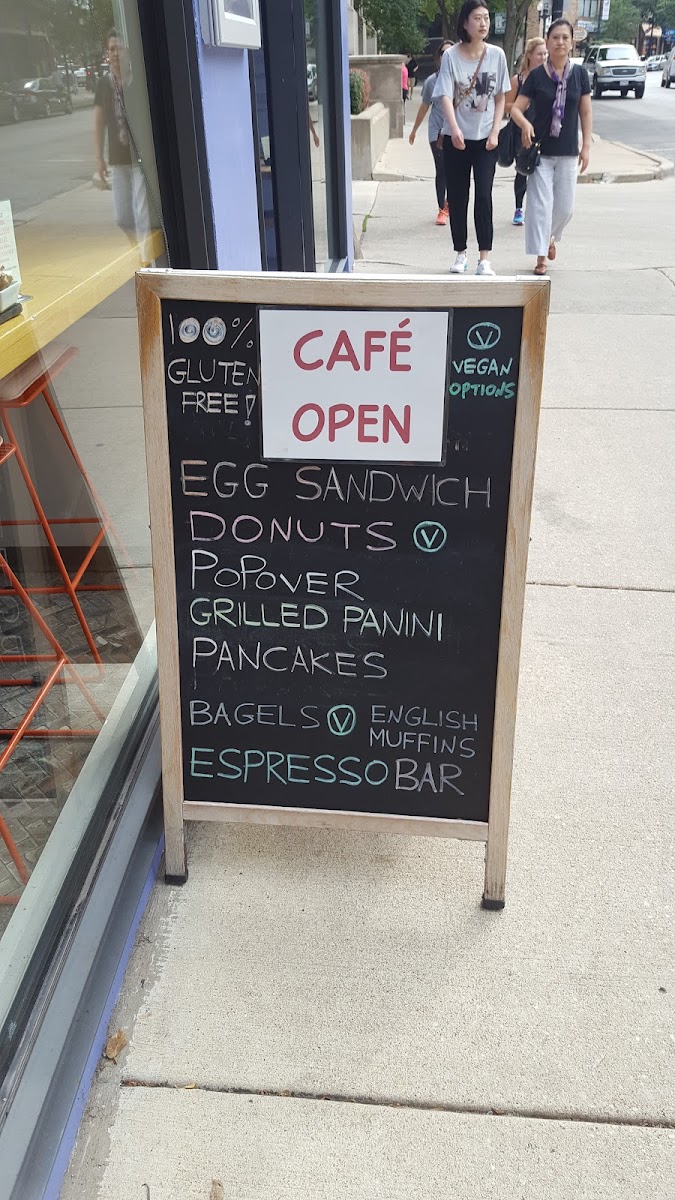 100%
GLUTEN
FREE!
CAFÉ
OPEN
V
VEGAN
OPTIONS
EGG SANDWICH
DONUTS V
POPOVER
GRILLED PANINI
PANCAKES
BAGELS V ENGLISH
MUFFINS
ESPRESSO BAR